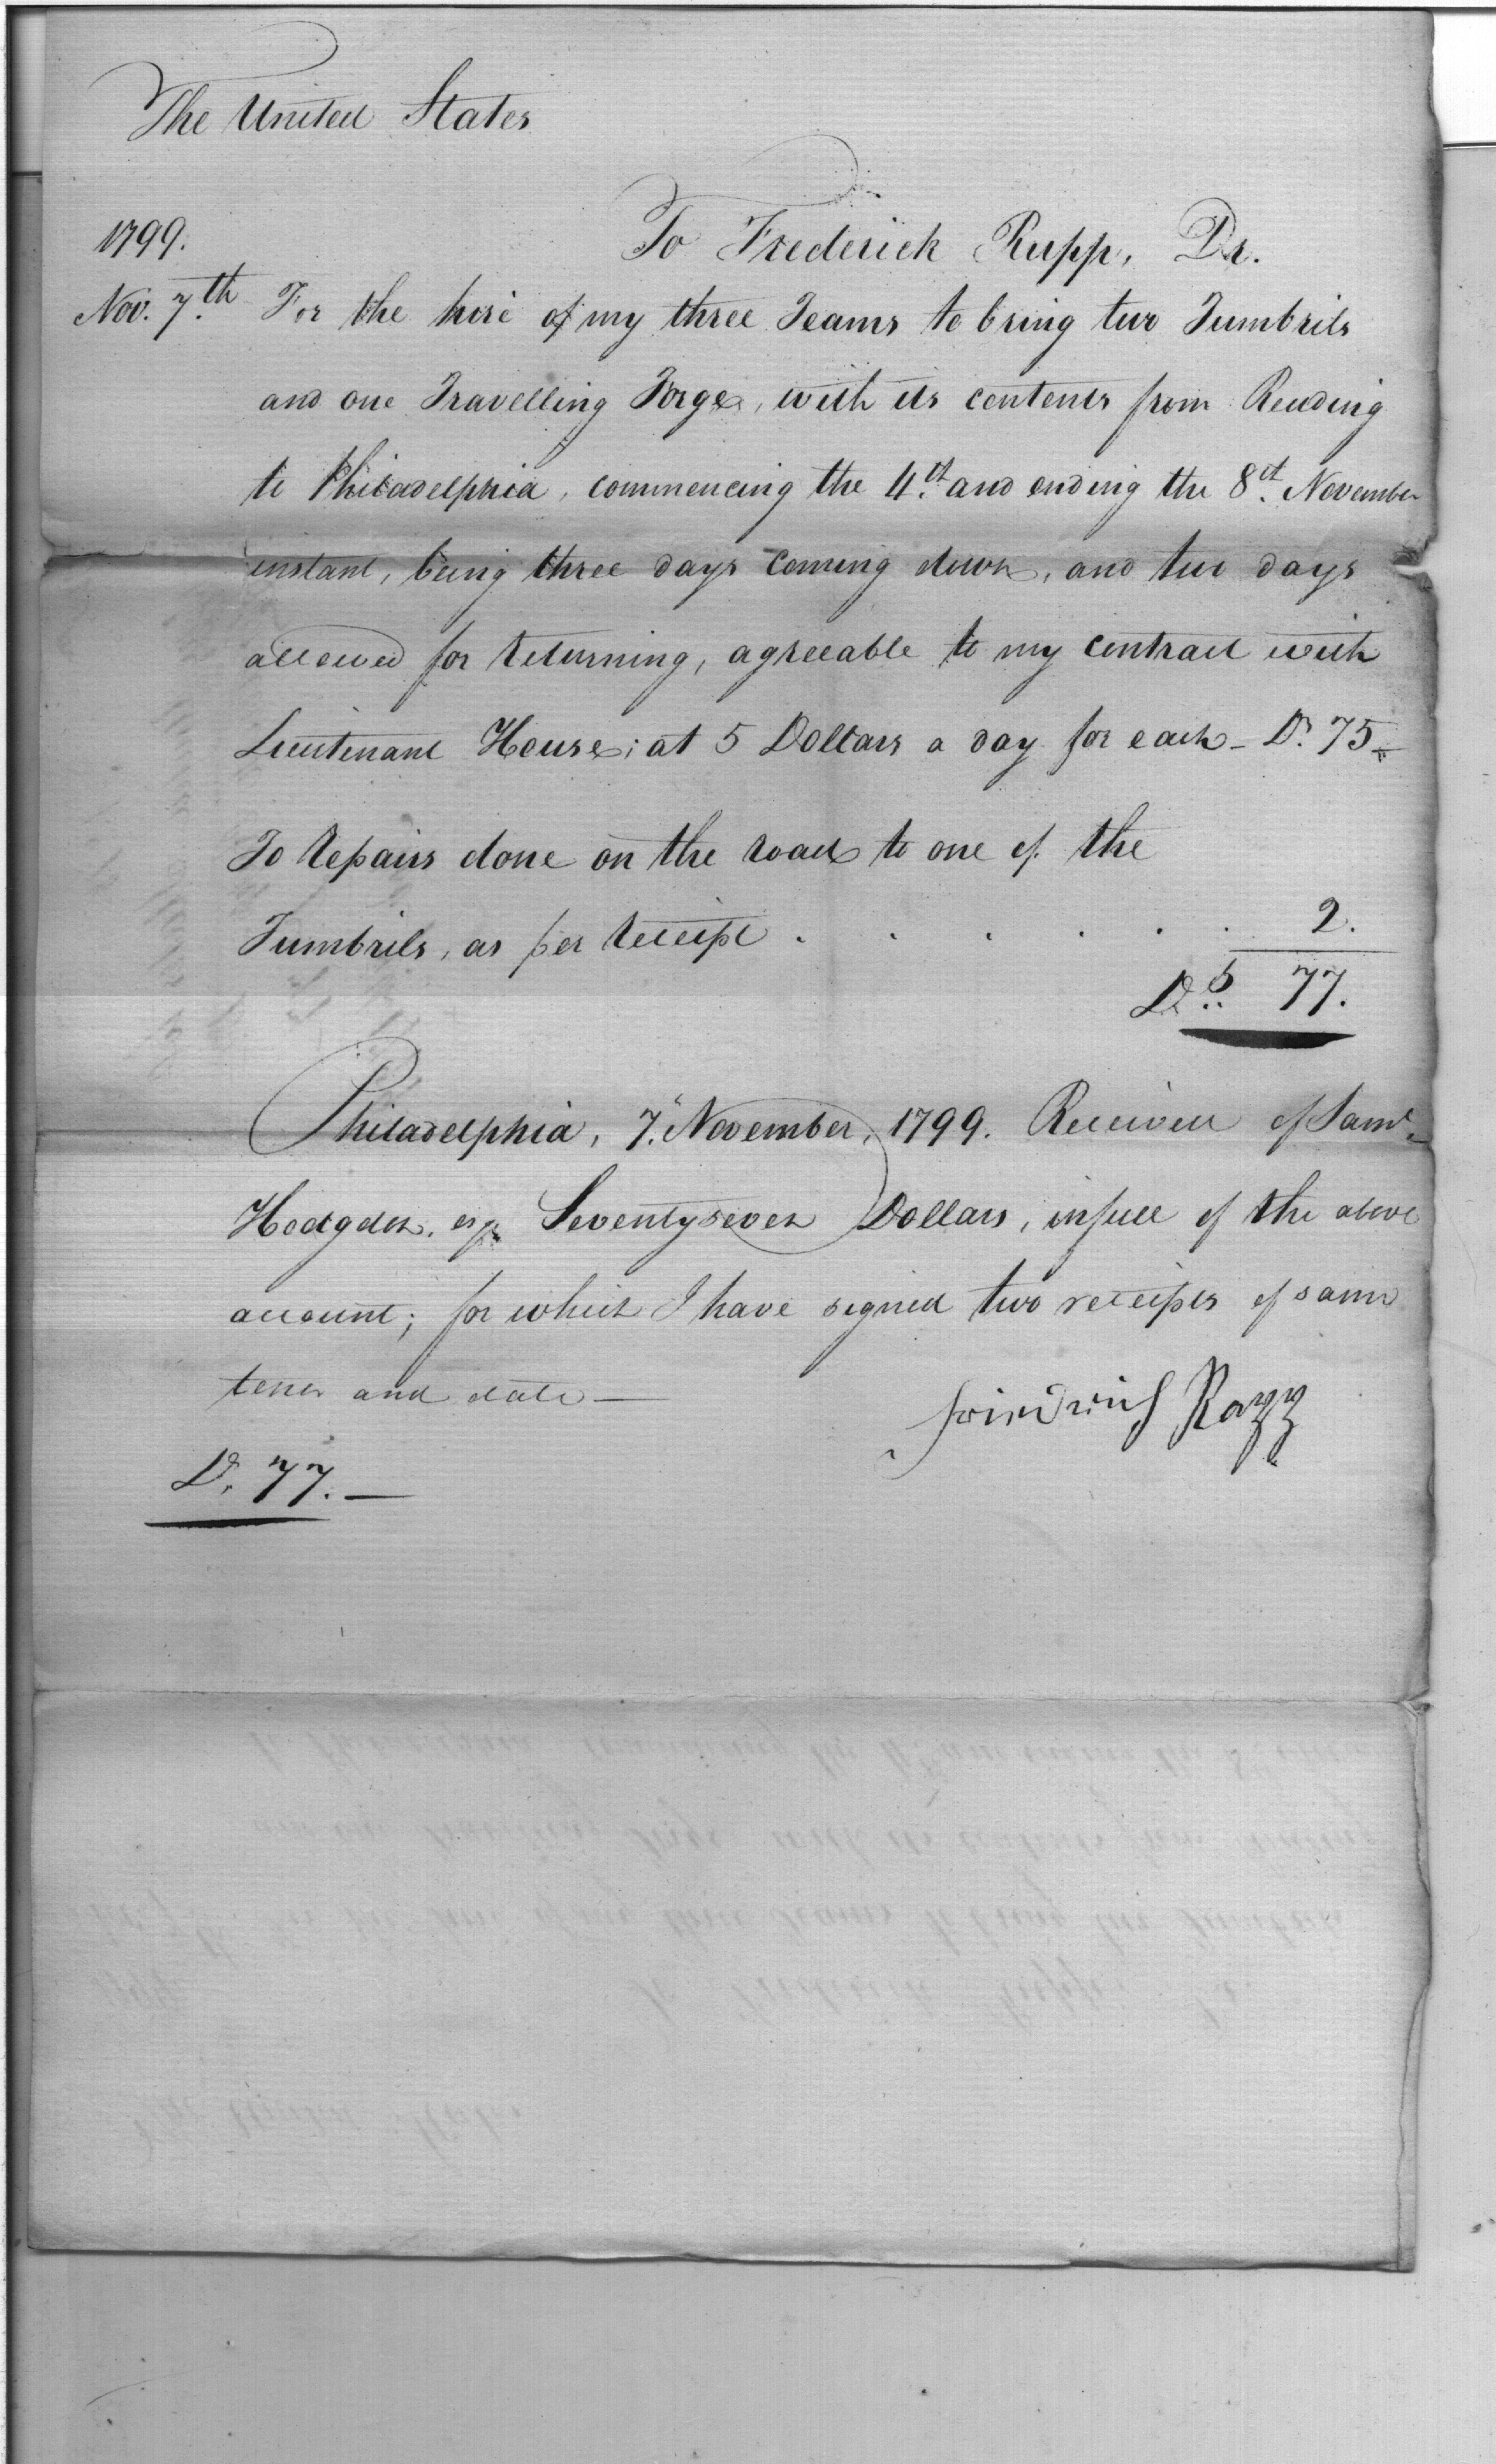 The United States
To Frederick Rupp, Dr.
1799.
Nov. 7.th For the hire of my three Teams to bring two Tumbrils
and one Travelling Forge, with its contents from Reading
to Philadelphia, commencing the 4.th and ending the 8.th November
instant, being three days coming down, and two days
allowed for returning, agreeable to my contract with
Lieutenant House; at 5 Dollars a day for each - Ds. 75 -
To repairs done on the road to one of the
Tumbrils, as per receipt . . . . . . 2.
Ds. 77.
Philadelphia, 7. November, 1799. Received of Saml.
Hodgdon, esqr. Seventy seven Dollars, in full of the above
account; for which I have signed two receipts of same
tenor and date —
Friedrich Rapp
D. 77. —